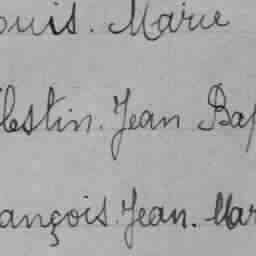 ouis. Marie
lestin. Jean Bap
ançois. Jean. Mar